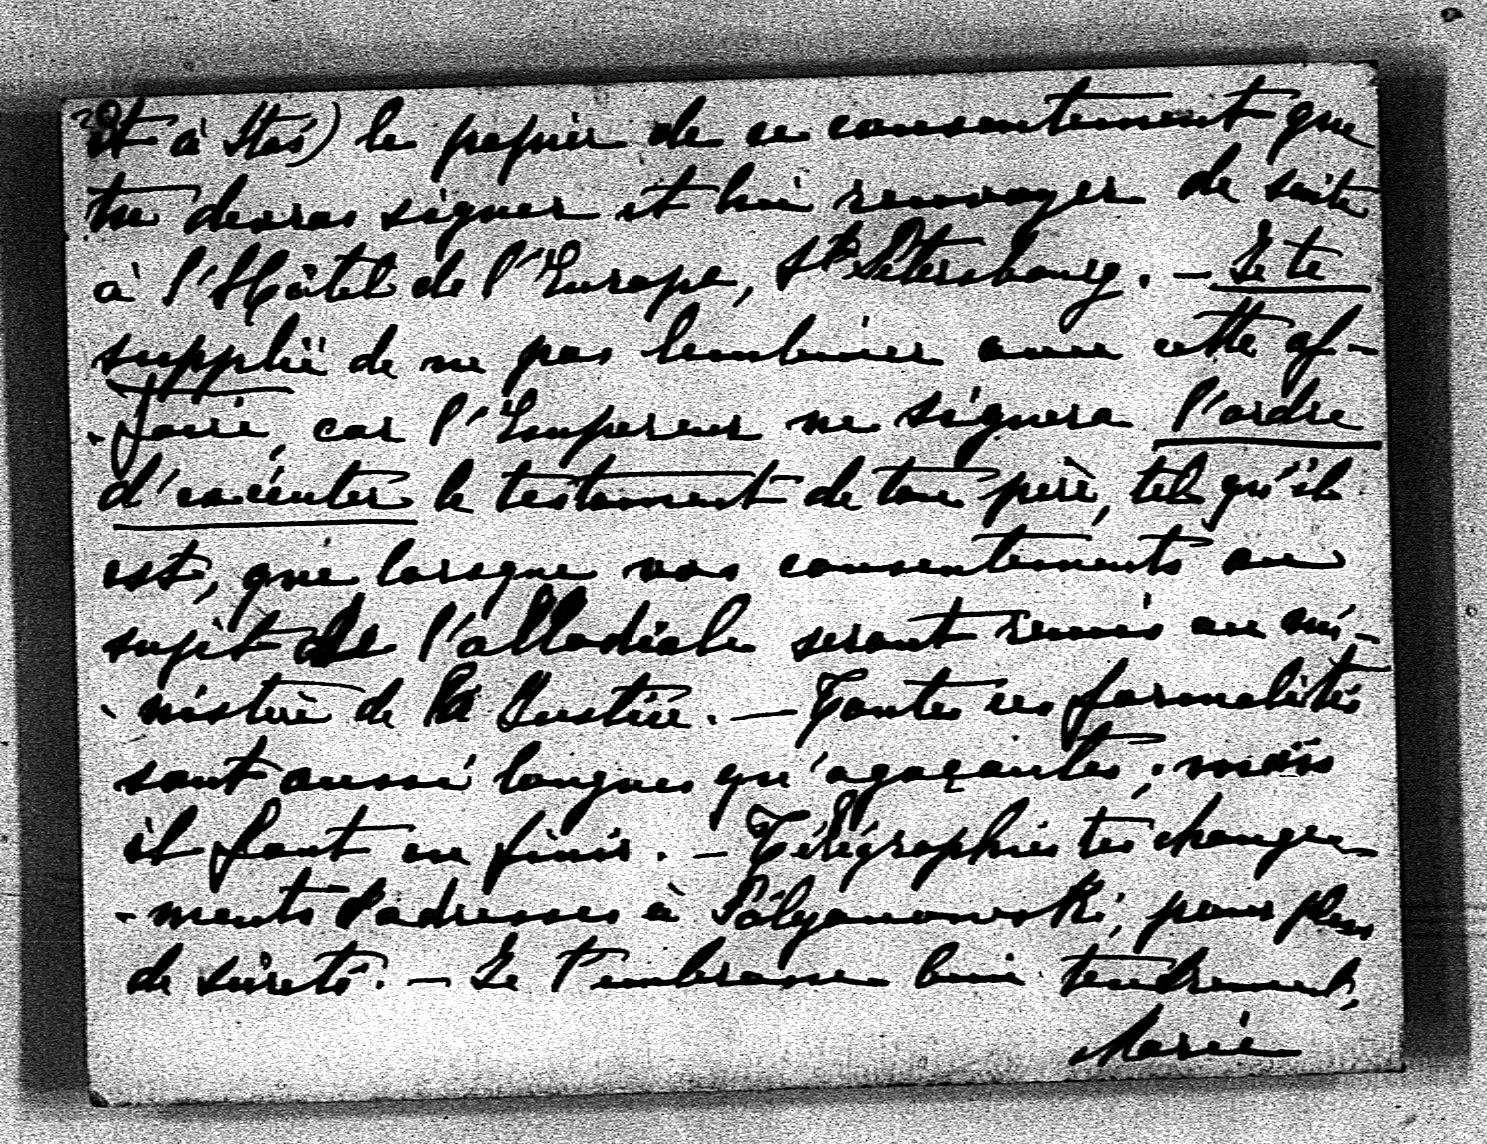 et à Stes) le papier de ce consentement que
tu devras signer et lui renvoyer de suite
à l'Hôtel de l'Europe, St Pétersbourg. — Je te
supplie de ne pas lambiner avec cette af-
-faire, car l'Empereur ne signera l'ordre
d'exécuter le testament de ton père, tel qu'il
est, que lorsque vos consentements au
sujet de l'allodiale seront remis au mi-
-nistère de la Justice. — Toutes ces formalités
sont aussi longues qu'agaçantes, mais
il faut en finir. — Télégraphie tes change-
-ments d'adresses à Polyanowski, pour plus
de sûreté. — Je t'embrasse bien tendrement,
Marie